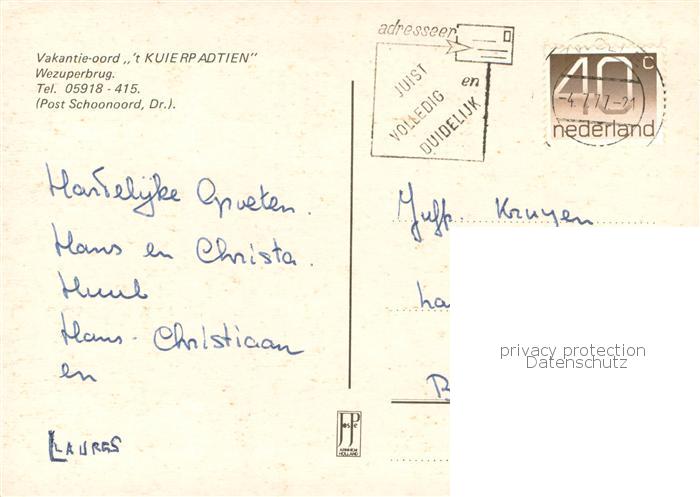 Vakantie-oord ,,'t KUIERPADTIEN"
Wezuperbrug.
Tel. 05918 - 415.
(Post Schoonoord, Dr.).
adresseer
JUIST
VOLLEDIG en
DUIDELIJK
40 c
nederland
-4.7.77.-21
Hartelijke Groeten.
Hans en Christa.
Huub
Hans-Christiaan
en
LAURES
Juffr. Kruyen
privacy protection
Datenschutz
JosPe
ARNHEM
HOLLAND